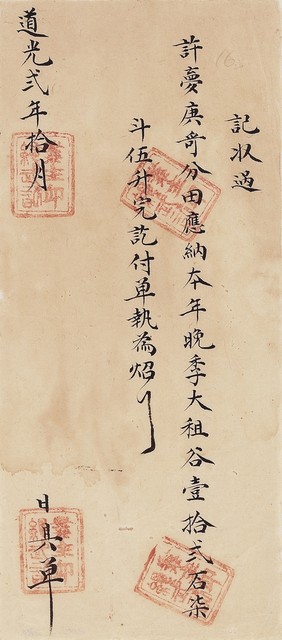 記収過
許夢庚哥分田應納本年晚季大租谷壹拾弍石柒
斗伍升完訖付单執為炤
道光弍年拾月
日具单